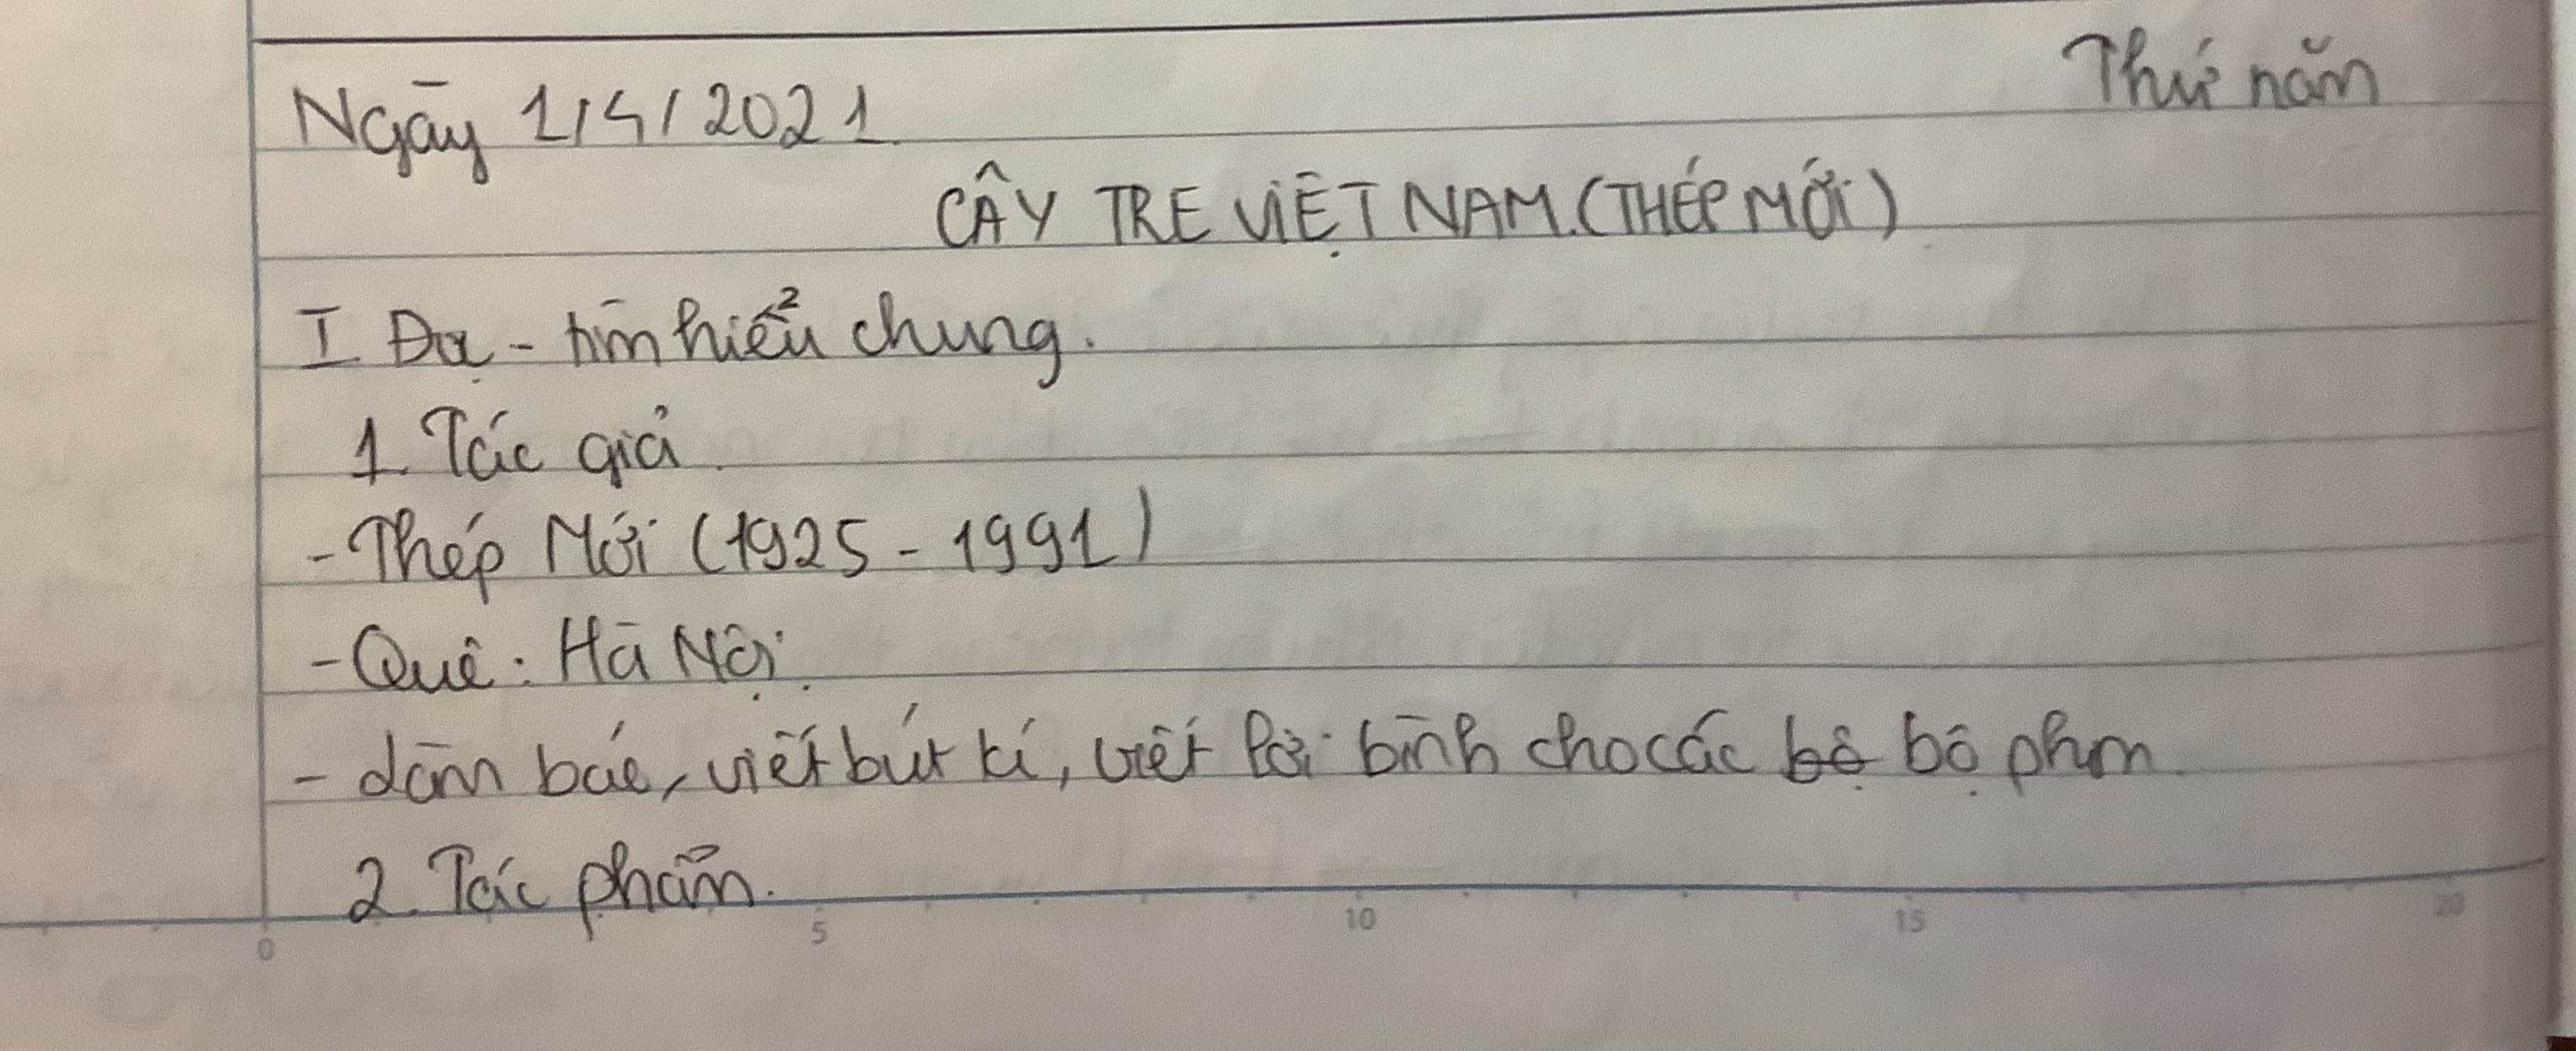 Thứ năm
Ngày 1/4/2021
CÂY TRE VIỆT NAM.(THÉP MỚI)
I Đọc - tìm hiểu chung.
1. Tác giả
- Thép Mới (1925 - 1991)
- Quê: Hà Nội.
- làm báo, viết bút kí, viết lời bình cho các bộ bộ phim
2. Tác phẩm.
0 5 10 15 20